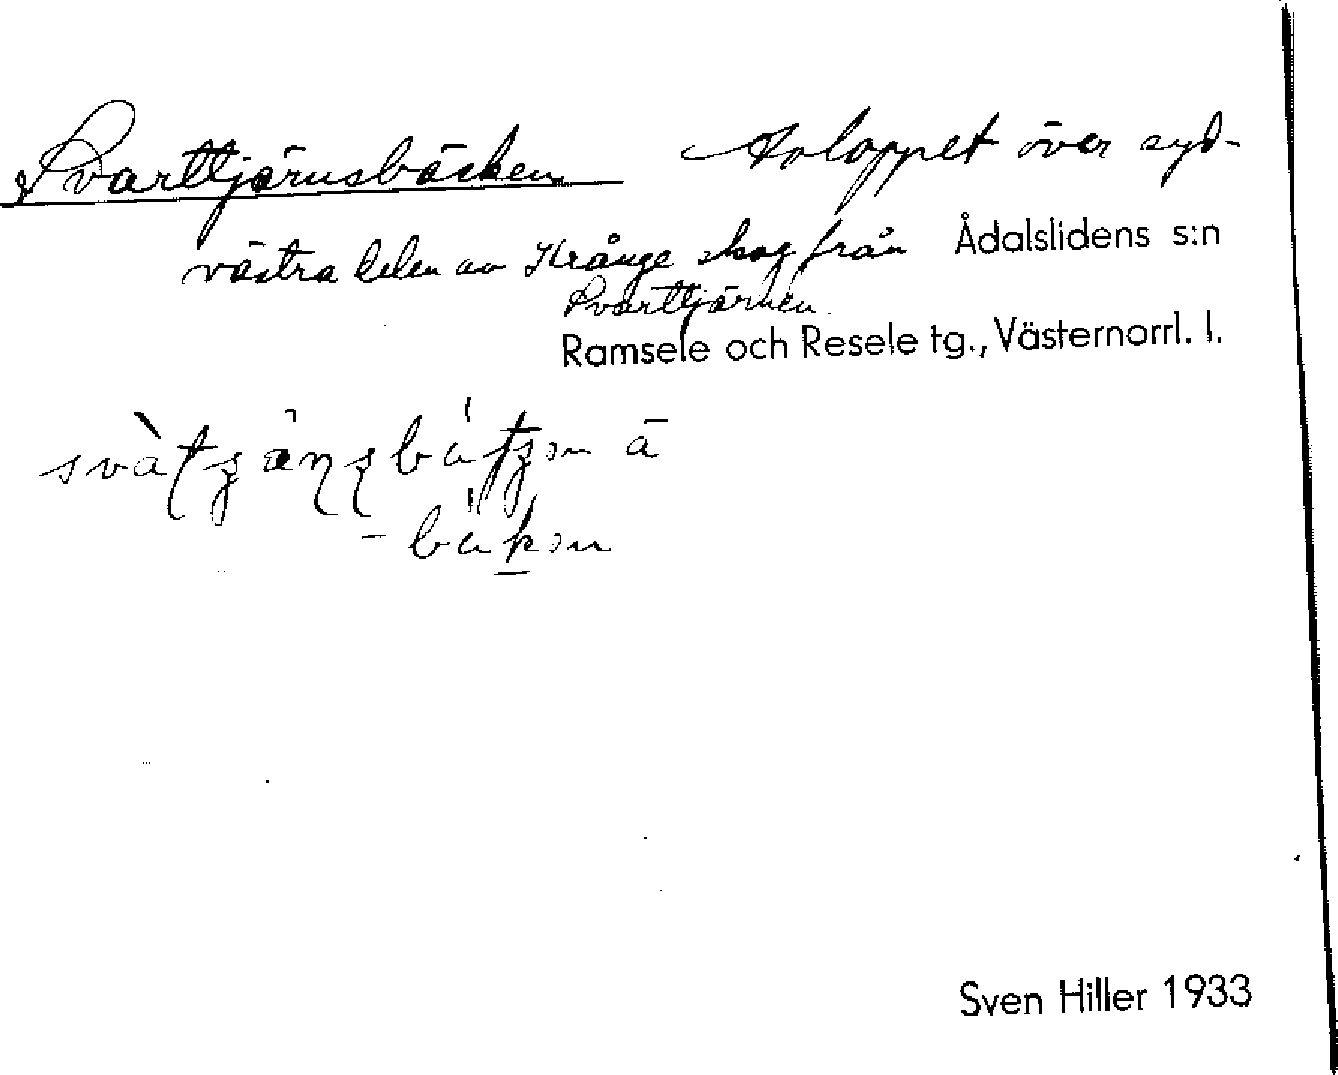 Svarttjärnsbäcken Avloppet över syd-
västra delen av Krånge skog från Ådalslidens s:n
Svarttjärnen.
Ramsele och Resele tg., Västernorrl. l.
Sven Hiller 1933